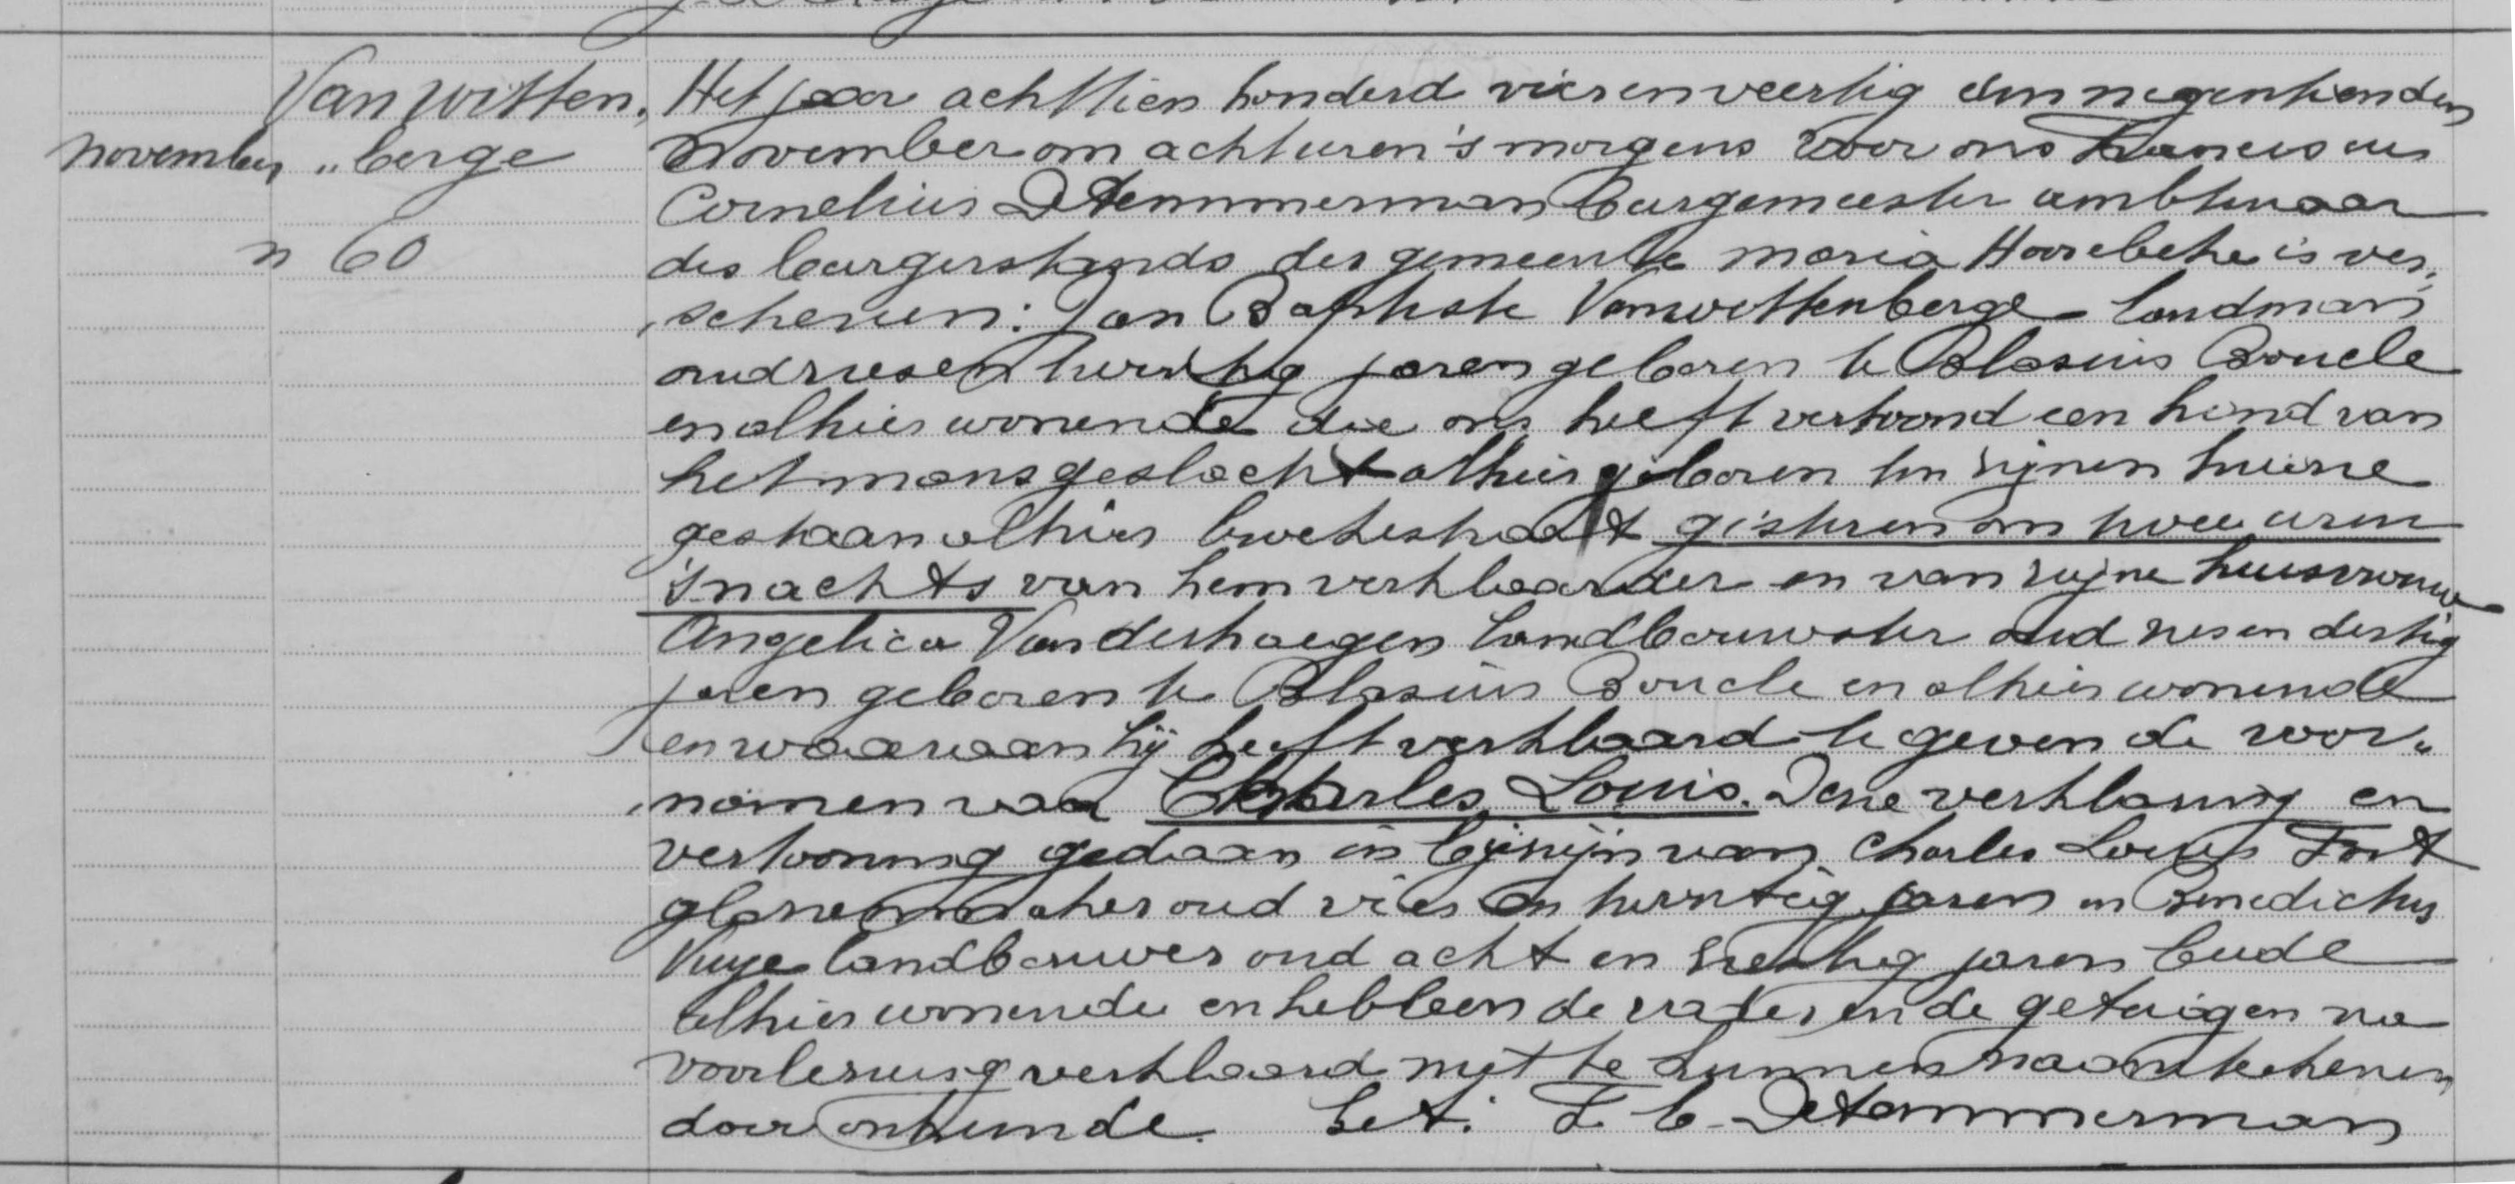 Van Witten,
november „berge
n 60
Het jaar achttien honderd vier en veertig den negentienden
November om acht uren 's morgens voor ons Franciscus
Cornelius DeTemmerman Burgemeester ambtenaar
des burgerstands der gemeente Maria Hoorebeke is ver,
,schenen: Jan Baptiste Vanwittenberge landman
oud zesentwintig jaren geboren te Blasius Boucle
en alhier wonende die ons heeft vertoond een kind van
het mansgeslacht alhier geboren ten zijnen huize
gestaan alhier gisteren om twee uren
'snachts van hem verklaarder en van zijne huisvrouw
Angelica Vanderhaegen landbouwster oud zes en dertig
jaren geboren te Blasius Boucle en alhier wonende
en waaraan hij heeft verklaard te geven de voor„
,namen van Charles Louis. Deze verklaring en
vertooning gedaan in bijzijn van Charles Louis
glazenmaker oud vier en twintig jaren en Benedictus
Vuye landbouwer oud acht en zestig jaren beide
alhier wonende en hebben de vader en de getuigen na
voorlezing verklaard niet te kunnen naamtekenen
door onkunde. Get. F. C. DeTemmerman